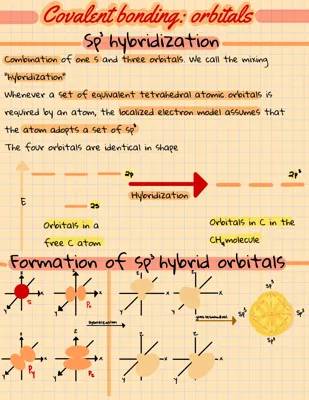 Covalent bonding: orbitals
Sp³ hybridization
Combination of one s and three orbitals. We call the mixing
"Hybridization"
Whenever a set of equivalent tetrahedral atomic orbitals is
required by an atom, the localized electron model assumes that
the atom adopts a set of sp³
The four orbitals are identical in shape
2p
2p³
Hybridization
E
2s
Orbitals in a
free C atom
Orbitals in C in the
CH₄ molecule
Formation of Sp³ hybrid orbitals
z
x
y
s
z
x
y
Px
z
z
Sp³
Sp³
Sp³
Sp³
hybridization
z
x
y
Py
z
x
y
Pz
z
z